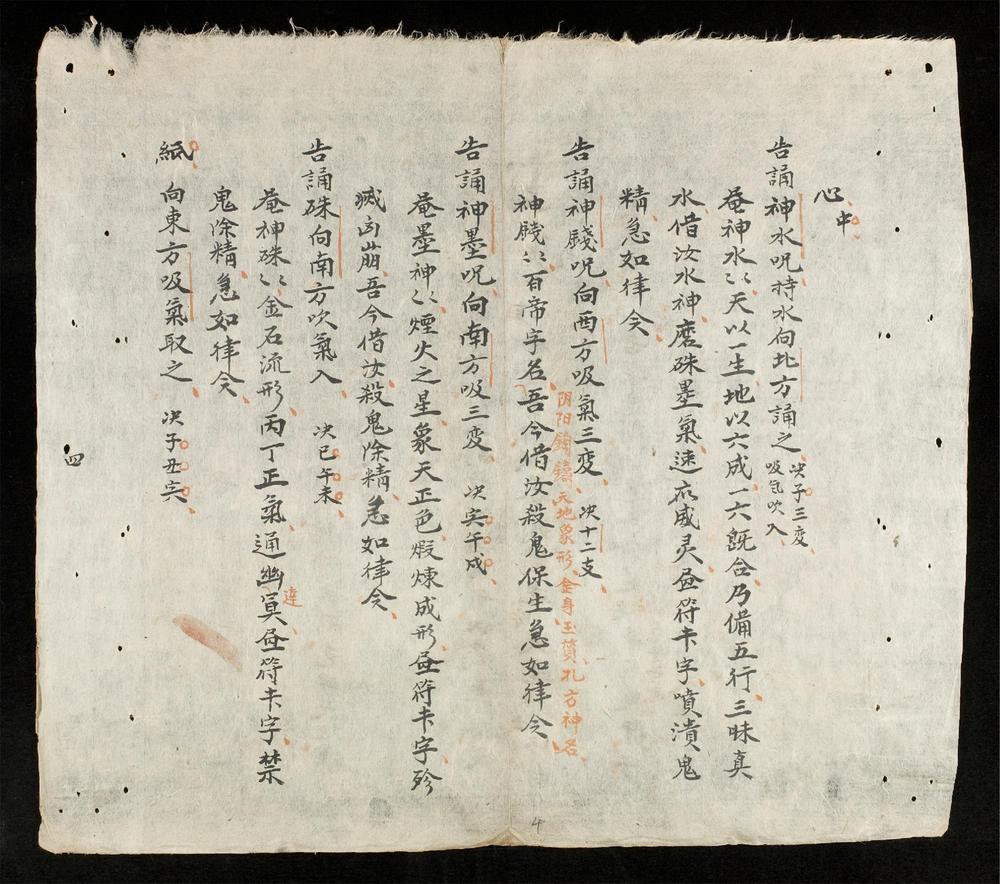 心中
告誦神水呪持水向北方誦之 决子三変
吸气吹入
菴神水〻天以一生地以六成一六既合乃備五行三昧真
水借汝水神磨硃墨氣速応威灵𦘕符卡字噴潰鬼
精急如律令
告誦神賎呪向西方吸氣三変 决十二支
阴阳鋳天地象形金身玉質孔方神名
神賎〻百帝字名吾今借汝殺鬼保生急如律令
告誦神墨呪向南方吸三変 决寅午戌
菴墨神〻煙火之星象天正色煆煉成形𦘕符卡字殄
滅凶萠吾今借汝殺鬼除精急如律令
告誦硃向南方吹氣入 决巳午未
菴神硃〻金石流形丙丁正氣通幽冥𦘕符卡字禁
達
鬼除精急如律令
紙向東方吸氣取之 决子丑寅
四
4